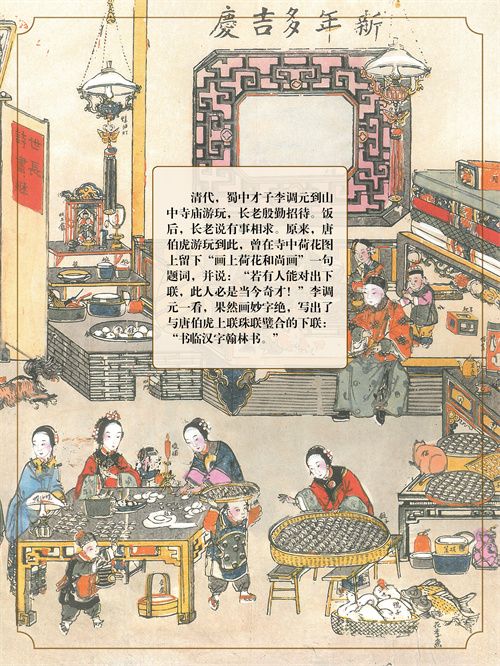 新年多吉慶
詩書繼世長
清代，蜀中才子李调元到山
中寺庙游玩，长老殷勤招待。饭
后，长老说有事相求。原来，唐
伯虎游玩到此，曾在寺中荷花图
上留下“画上荷花和尚画”一句
题词，并说：“若有人能对出下
联，此人必是当今奇才！”李调
元一看，果然画妙字绝，写出了
与唐伯虎上联珠联璧合的下联：
“书临汉字翰林书。”
猫